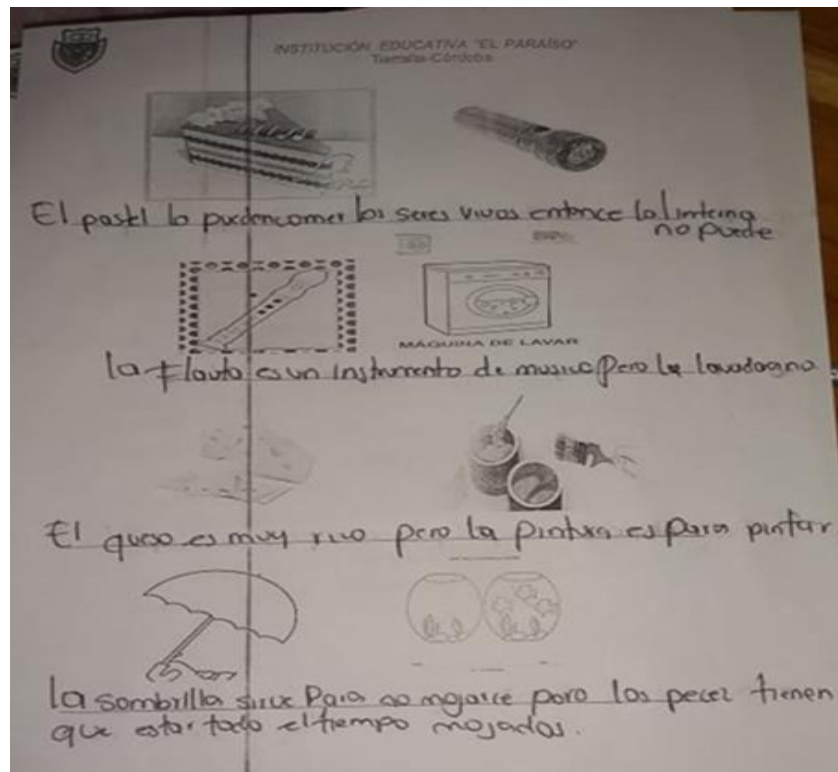 INSTITUCIÓN EDUCATIVA "EL PARAÍSO"
Tierralta-Córdoba
El pastel lo puedencomer los seres vivos entonce la linterna
no puede
MÁQUINA DE LAVAR
la flauta es un instrumento de musica pero la lavadora no
El queso es muy rico pero la pintura es para pintar
la sombrilla sirve Para no mojarce pero los peces tienen
que estar todo el tiempo mojados.